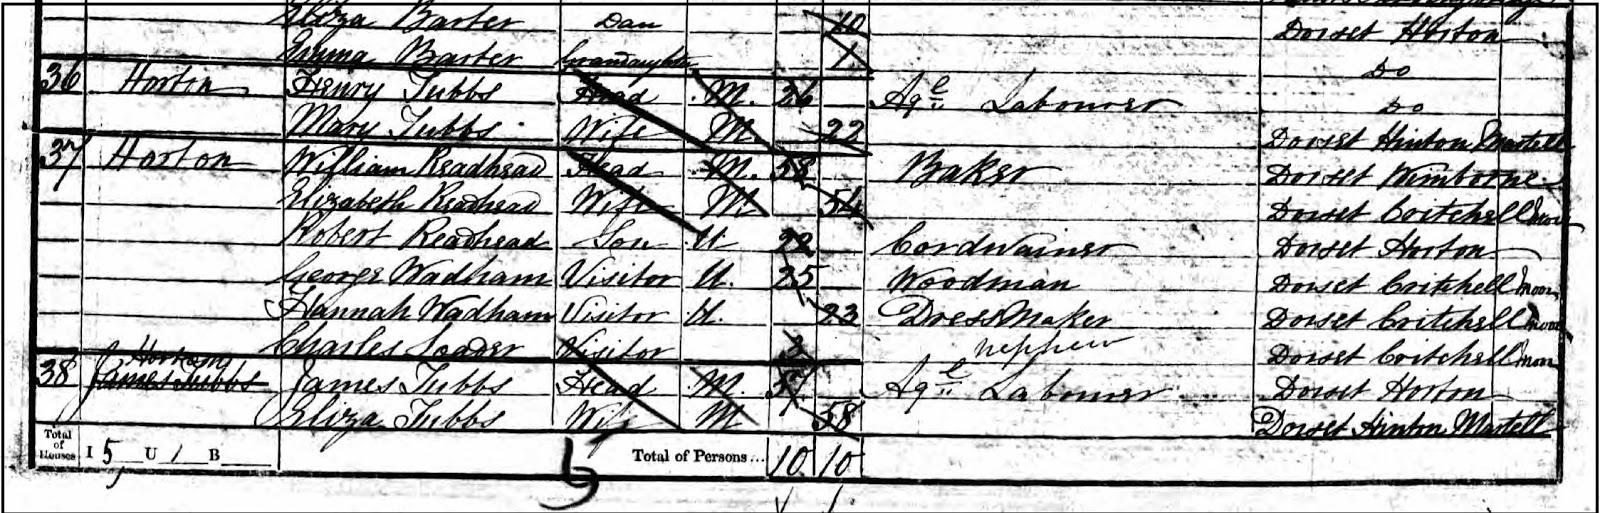 Eliza Barter Dau 10 Dorset Horton
Emma Barter Grandaughter 1 Do
36 Horton Henry Tubbs Head M. 26 Agl Labourer Do
Mary Tubbs Wife M 22 Dorset Hinton Martell
37 Horton William Readhead Head M. 58 Baker Dorset Wimborne
Elizabeth Readhead Wife M 54 Dorset Critchell Moor
Robert Readhead Son U 22 Cordwainer Dorset Horton
George Wadham Visitor U. 25 Woodman Dorset Critchell Moor
Hannah Wadham Visitor U. 23 Dress Maker Dorset Critchell Moor
Charles Loader Visitor nephew Dorset Critchell Moor
Horton
38 James Tubbs James Tubbs Head M. Agl Labourer Dorset Horton
Eliza Tubbs Wife M 58 Dorset Hinton Martell
Total of Houses I 5 U 1 B Total of Persons... 10 10